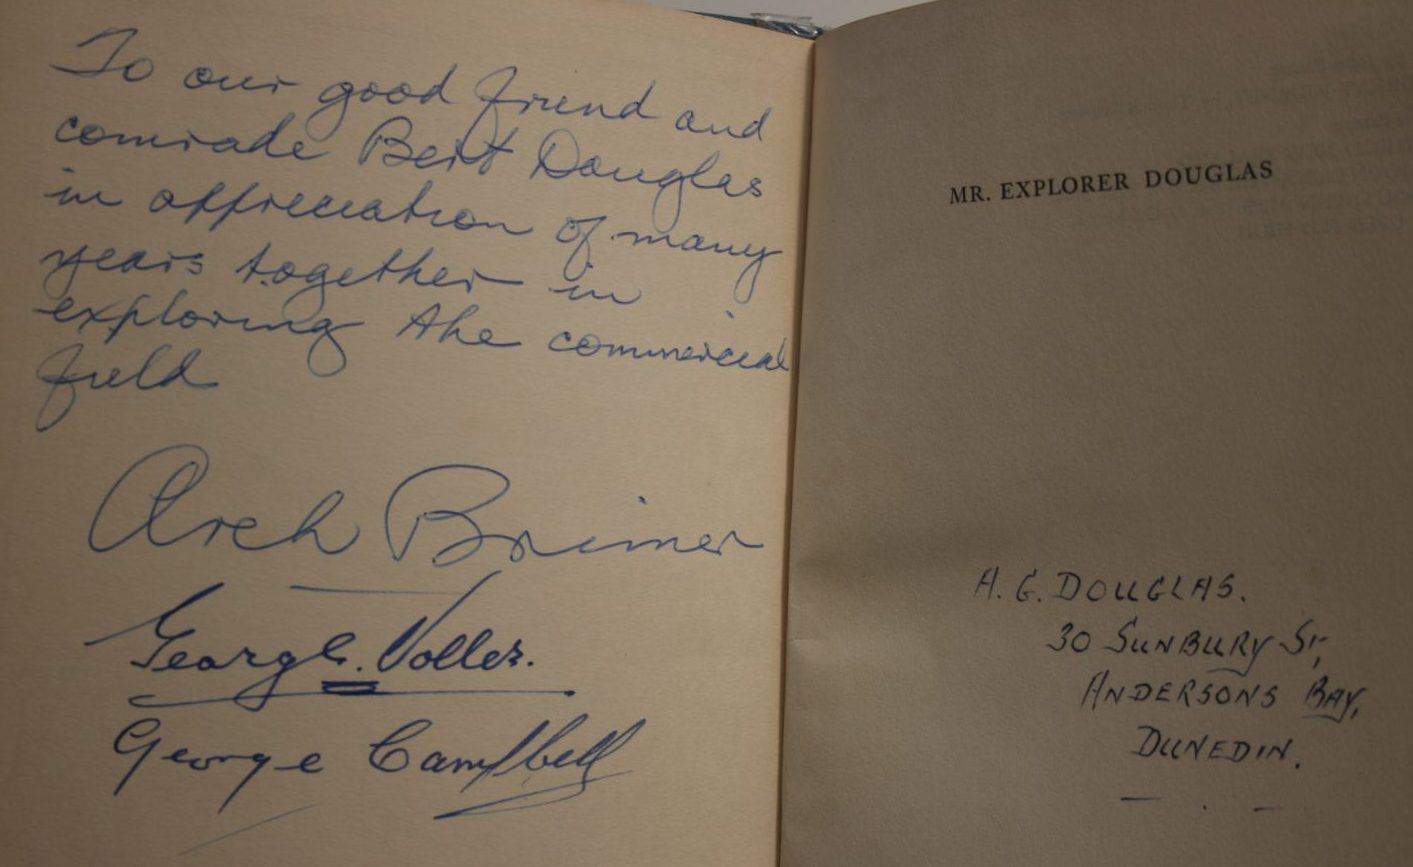 To our good friend and
comrade Bert Douglas
in appreciation of many
years together in
exploring the commercial
field
Arch Brimer
George. Voller.
George Campbell
MR. EXPLORER DOUGLAS
A. G. DOUGLAS.
30 SUNBURY ST,
ANDERSONS BAY,
DUNEDIN.